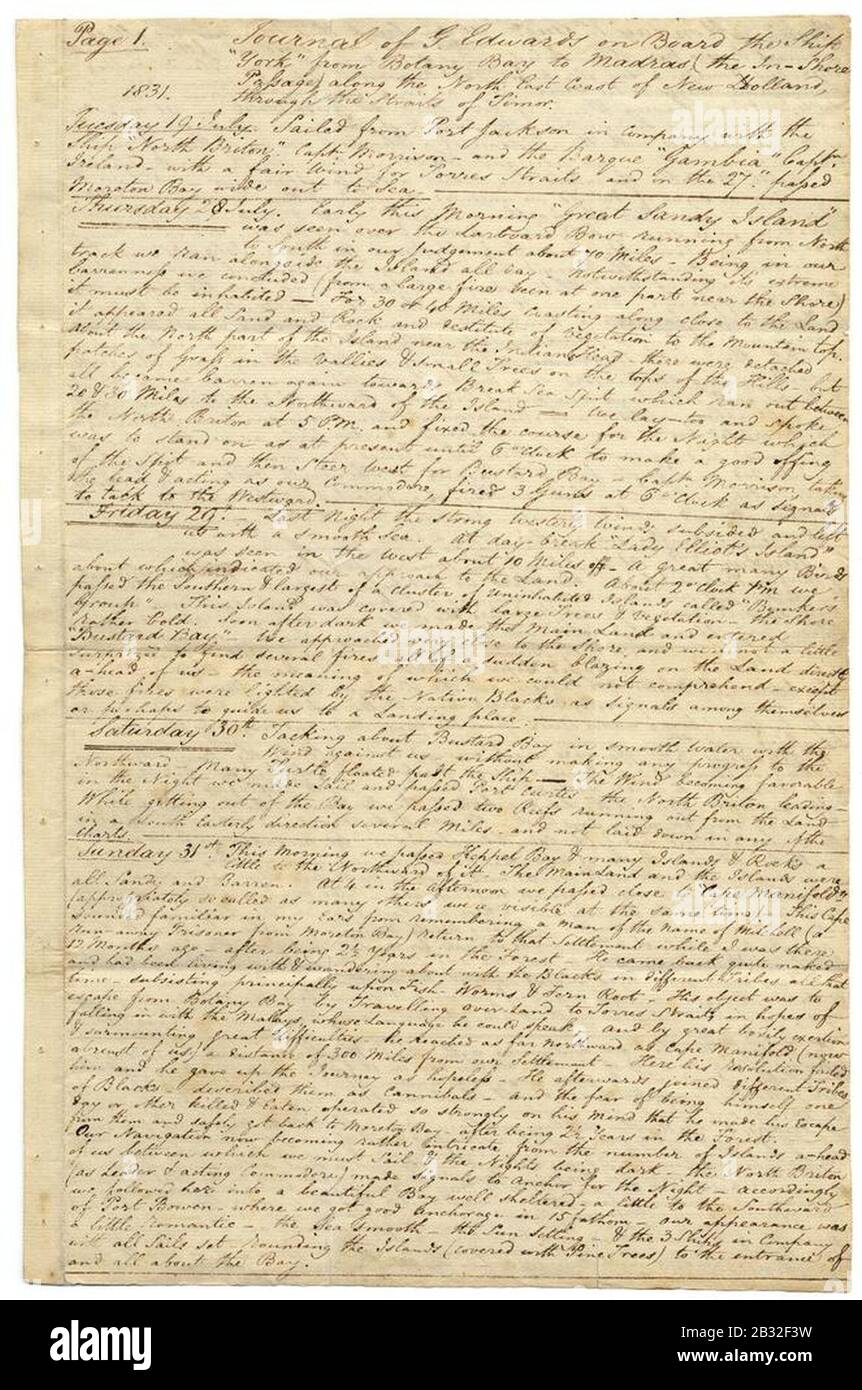 Page 1.
Journal of G. Edwards on Board the Ship
"York" from Botany Bay to Madras (the In-Shore
Passage) along the North East Coast of New Holland,
through the Straits of Timor.
1831.
Tuesday 19 July. Sailed from Port Jackson in company with the
Ship "North Briton" Captn. Morrison - and the Barque "Gambia" Captn.
Ireland - with a fair Wind for Torres Straits and in the 27th. passed
Moreton Bay wide out to Sea.
Thursday 28 July. Early this Morning "Great Sandy Island"
was seen over the Larboard Bow running from North
to South in our judgement about 70 Miles - Being in our
track we ran alongside the Island all day - notwithstanding its extreme
barrenness we concluded (from a large fire seen at one part near the Shore)
it must be inhabited - For 30 or 40 Miles coasting along close to the Land
it appeared all Sand and Rock and destitute of vegetation to the Mountain top.
About the North part of the Island near the Indian Head - there were detached
patches of Grass in the Vallies & small Trees on the tops of the Hills but
all became barren again towards Break Sea Spit which ran out between
20 & 30 Miles to the Northward of the Island - We lay-too and spoke
the North Briton at 5 P.M. and fixed the course for the Night which
was to stand on as at present until 6 o'Clock to make a good offing
of the Spit and then Steer West for Bustard Bay - Captn. Morrison taking
the lead & acting as our Commodore, fired 3 Guns at 6 o'Clock as signals
to tack to the Westward.
Friday 29th. Last Night the strong westerly Winds subsided and left
us with a smooth sea. At day-break "Lady Elliot's Island"
was seen in the West about 10 Miles off - A great many Birds
about which indicated our approach to the Land. About 2 o'Clock P.M. we
passed the Southern & largest of a cluster of Uninhabited Islands called "Bunkers
Group". This Island was covered with large Trees & vegetation - the Shore
rather bold. Soon after dark we made the Main Land and entered
"Bustard Bay". We approached very close to the Shore, and were not a little
surprized to find several fires all of a sudden blazing on the Land directly
a-head of us - the meaning of which we could not comprehend - except
those fires were lighted by the Native Blacks as Signals among themselves
or perhaps to guide us to a Landing place.
Saturday 30th. Tacking about Bustard Bay in smooth Water with the
Wind against us without making any progress to the
Northward. Many Turtle floated past the Ship - The Wind becoming favorable
in the Night we made Sail and passed Port Curtis the North Briton leading -
While getting out of the Bay we passed two Reefs running out from the Land
in a South Easterly direction several Miles - and not laid down in any of the
Charts.
Sunday 31st. This Morning we passed Keppel Bay & many Islands & Rocks a
little to the Northward of it. The Main Land and the Islands were
all Sandy and Barren. At 4 in the Afternoon we passed close to "Cape Manifold"
(appropriately so called as many others were visible at the same time). This Cape
sounded familiar in my Ears from remembering a man of the name of Mitchell (a
Run-away Prisoner from Moreton Bay) return to that Settlement while I was there
12 Months ago - after being 2½ Years in the Forest. He came back quite naked
and had been living with & wandering about with the Blacks in different Tribes all that
time - subsisting principally upon Fish - Worms & Fern Root - His object was to
escape from Botany Bay by Travelling over-Land to Torres Straits in hopes of
falling in with the Mallays, whose Language he could speak - and by great bodily exertion
& surmounting great difficulties he reached as far northward as Cape Manifold (now
abreast of us) a distance of 300 Miles from our Settlement - Here his resolution failed
him and he gave up the Journey as hopeless - He afterwards joined different Tribes
of Blacks - described them as Cannibals - and the fear of being himself one
day or other killed & Eaten operated so strongly on his mind that he made his Escape
from them and safely got back to Moreton Bay - after being 2½ Years in the Forest.
Our Navigation now becoming rather intricate from the number of Islands a-head
of us between which we must Sail & the Nights being dark - the North Briton
(as Leader & acting Commodore) made Signals to Anchor for the Night - accordingly
we followed her into a beautiful Bay well sheltered - a little to the Southward
of Port Bowen - where we got good anchorage in 15 fathom - our appearance was
a little romantic - the Sea smooth - the Sun Setting - & the 3 Ships in Company
with all Sails set rounding the Islands (covered with Pine Trees) to the entrance of
and all about the Bay.
alamy
Image ID: 2B32F3W
www.alamy.com